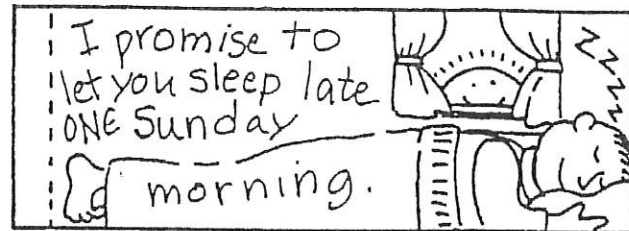 I promise to
let you sleep late
ONE Sunday
morning.